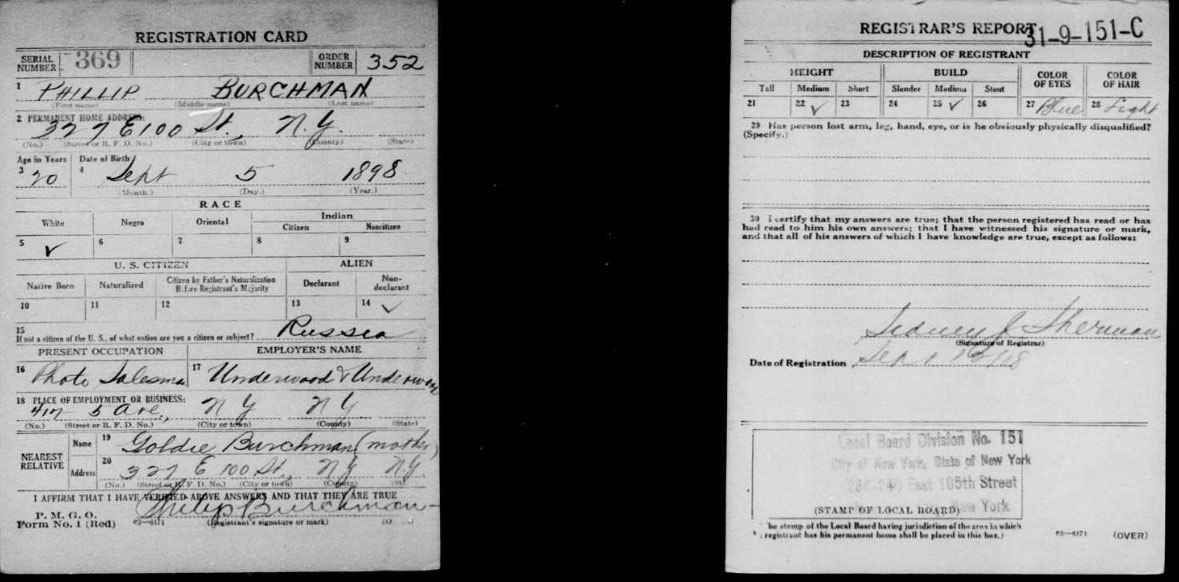 REGISTRATION CARD
SERIAL NUMBER 369 ORDER NUMBER 352
1 PHILLIP BURCHMAN
(First name) (Middle name) (Last name)
2 PERMANENT HOME ADDRESS:
327 E 100 St., N.Y.
(No.) (Street or R. F. D. No.) (City or town) (County) (State)
Age in Years Date of Birth
3 20 4 Sept 5 1898
(Month.) (Day.) (Year.)
RACE
White Negro Oriental Indian
Citizen Noncitizen
5 ✓ 6 7 8 9
U. S. CITIZEN ALIEN
Native Born Naturalized Citizen by Father's Naturalization Before Registrant's Majority Declarant Non-declarant
10 11 12 13 14 ✓
15 If not a citizen of the U. S., of what nation are you a citizen or subject? Russia
PRESENT OCCUPATION EMPLOYER'S NAME
16 Photo Salesma 17 Underwood & Underwood
18 PLACE OF EMPLOYMENT OR BUSINESS:
417 5 Ave., N Y N Y
(No.) (Street or R. F. D. No.) (City or town) (County) (State)
NEAREST RELATIVE Name 19 Goldie Burchman (mother)
Address 20 327 E 100 St., NY NY.
(No.) (Street or R. F. D. No.) (City or town) (County) (State)
I AFFIRM THAT I HAVE VERIFIED ABOVE ANSWERS AND THAT THEY ARE TRUE
P. M. G. O.
Form No. 1 (Red) 03—6171 Philip Burchman
(Registrant's signature or mark)
REGISTRAR'S REPORT 31-9-151-C
DESCRIPTION OF REGISTRANT
HEIGHT BUILD COLOR OF EYES COLOR OF HAIR
Tall Medium Short Slender Medium Stout
21 22 ✓ 23 24 25 ✓ 26 27 Blue 28 Light
29 Has person lost arm, leg, hand, eye, or is he obviously physically disqualified?
(Specify.)
30 I certify that my answers are true; that the person registered has read or has
had read to him his own answers; that I have witnessed his signature or mark,
and that all of his answers of which I have knowledge are true, except as follows:
Sidney J. Sherman
(Signature of Registrar)
Date of Registration Sept 12/18
Local Board Division No. 151
City of New York, State of New York
East 105th Street
New York
(STAMP OF LOCAL BOARD)
The stamp of the Local Board having jurisdiction of the area in which
registrant has his permanent home shall be placed in this box.) 03—6171 (OVER)